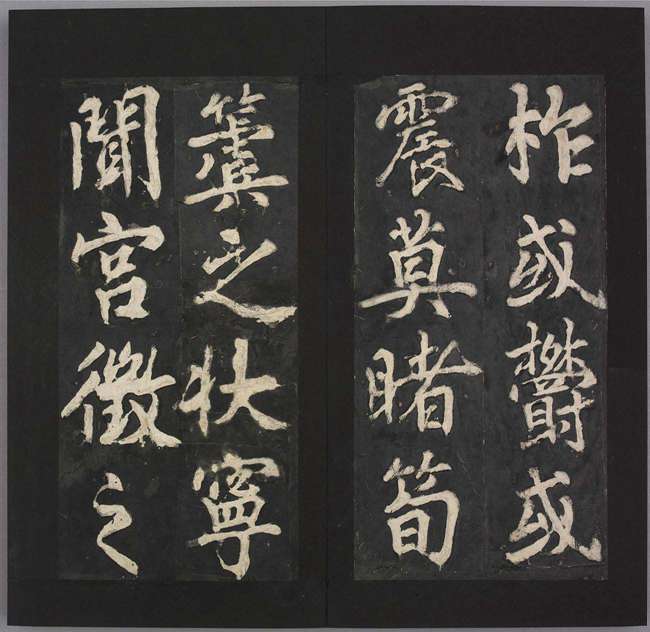 柞或鬱或
震莫睹筍
簴之状寧
聞宮徵之